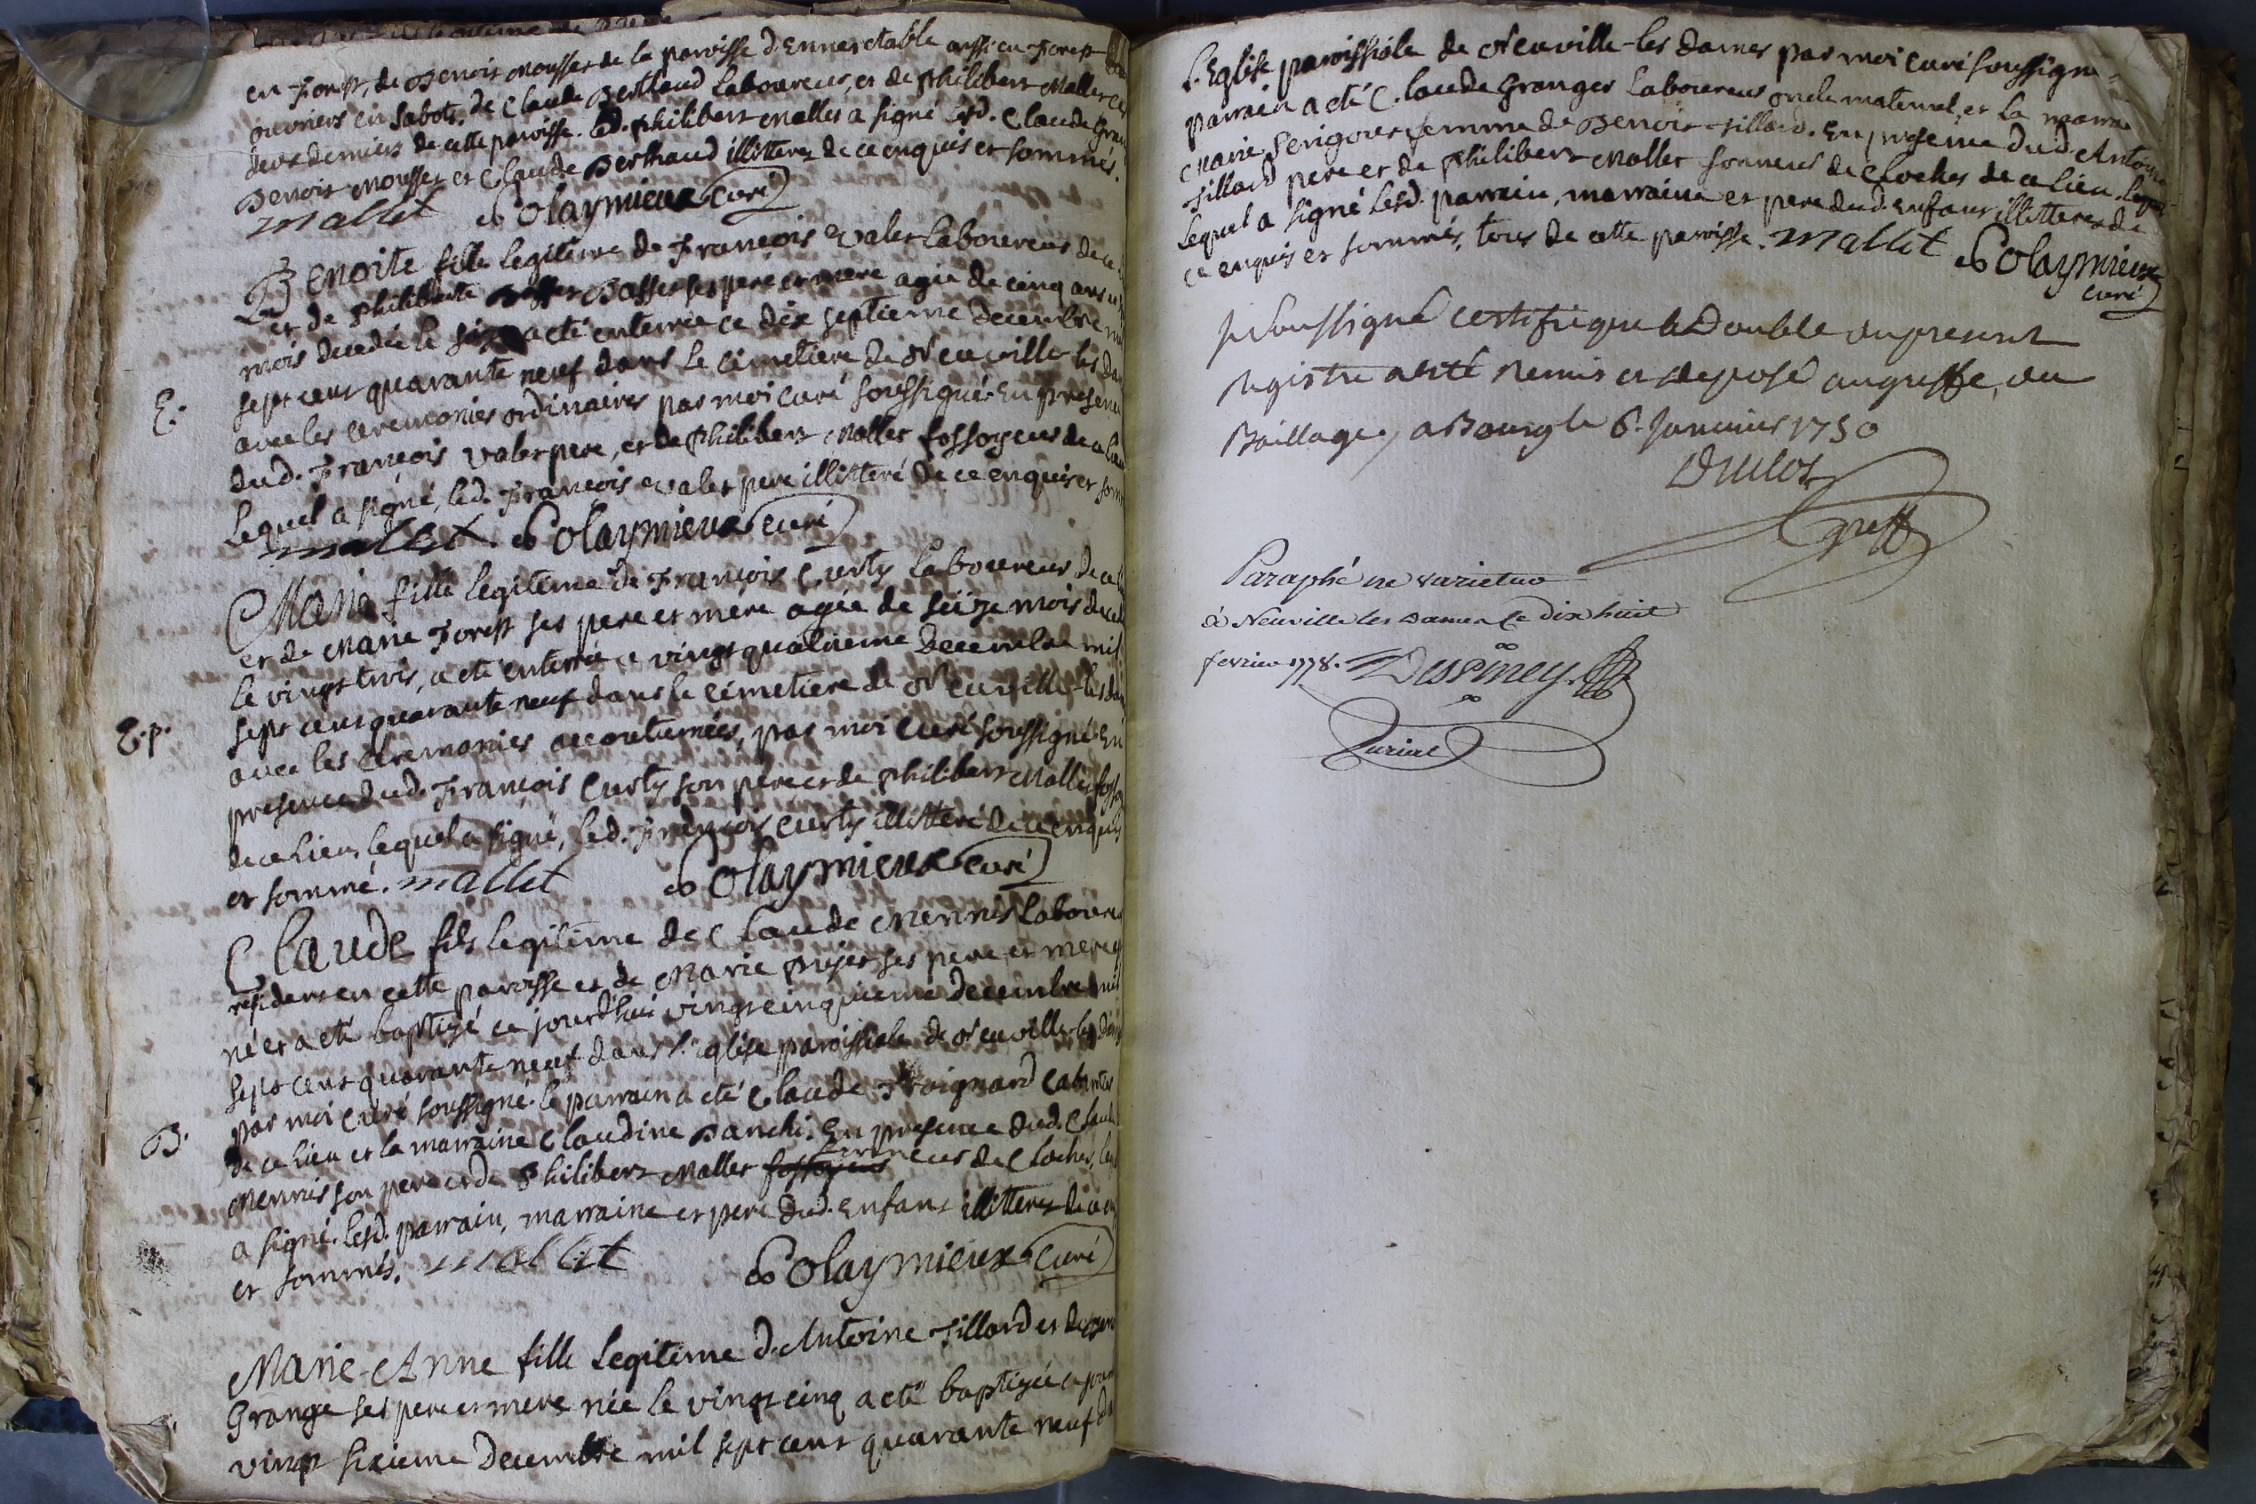 en Forest, de Benoit Mousset de la paroisse d'Ennestable aussi en Forest
ouvriers en sabots, de Claude Berthaud laboureur, et de Philibert Mallet ces
deux derniers de cette paroisse. led. Philibert Mallet a signé lesd. Claude
Benoit Mousset et Claude Berthaud illitterez de ce enquis et sommés.
mallet Colaymieux curé
Benoite fille legitime de François Valet laboureur de ce
et de Philiberte Basset ses pere et mere agée de cinq ans
mois decedée le a eté enterrée ce dix septieme decembre
sept cent quarante neuf dans le cimetiere de Neuville-les
E.
avec les ceremonies ordinaires par moi curé soussigné. En presence
dud. François Valet pere, et de Philibert Mallet fossoyeur de ce lieu
lequel a signé, led. François Valet pere illitteré de ce enquis et
mallet Colaymieux curé
Marie fille legitime de François Curty laboureur de ce
et de Marie Forest ses pere et mere agée de seize mois
le vingt trois, a eté enterrée ce vingt quatrieme Decembre mil
sept cent quarante neuf dans le cimetiere de Neuville-les
E.p.
avec les ceremonies accoutumées, par moi curé soussigné. En
presence dud. François Curty son pere et de Philibert Mallet
de ce lieu, lequel a signé, led. François Curty illitteré de ce enquis
et sommé. mallet Colaymieux curé
Claude fils legitime de Claude Mennis
resident en cette paroisse et de Marie ses pere et mere
né et a eté baptizé ce jourd'hui vingt cinquieme Decembre mil
sept cent quarante neuf dans l'eglise paroissiale de Neuville-les
par moi curé soussigné. le parrain a eté Claude
B.
de ce lieu et la marraine Claudine En presence dud. Claude
Mennis son pere et de Philibert Mallet fossoyeur sonneur de cloches,
a signé. lesd. parrain, marraine et pere dud. enfant illitterez de ce
et sommés. mallet Colaymieux curé
Marie-Anne fille legitime d'Antoine Tillard et de
Grange ses pere et mere née le vingt cinq a eté baptizée ce
vingt sixieme Decembre mil sept cent quarante neuf
l'Eglise paroissiale de Neuville-les dames par moi curé soussigné
parrain a eté Claude Granger laboureur oncle maternel, et la
Marie femme de Benoit Tillard. En presence dud. Antoine
Tillard pere et de Philibert Mallet sonneur de cloches de ce lieu.
lequel a signé lesd. parrain, marraine et pere dud. enfant illitterez de
ce enquis et sommés, tous de cette paroisse. mallet Colaymieux
curé
Je soussigné certifie que le Double du present
Registre a eté remis et deposé au greffe du
Baillage, a Bourg le 6. Janvier 1750
greff
Paraphé ne varietur
à Neuville les Dames ce dix huit
fevrier 1778.